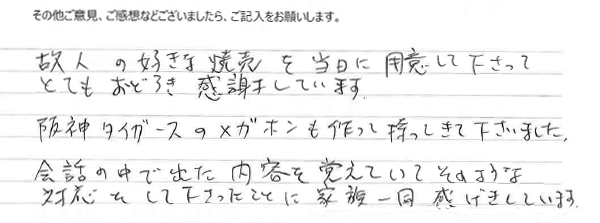 その他ご意見、ご感想などございましたら、ご記入をお願いします。
故人の好きな焼売を当日に用意して下さって
とてもおどろき感謝をしています。
阪神タイガースのメガホンも作って持ってきて下さいました。
会話の中で出た内容を覚えていてそのような
対応をして下さったことに家族一同感げきしています。